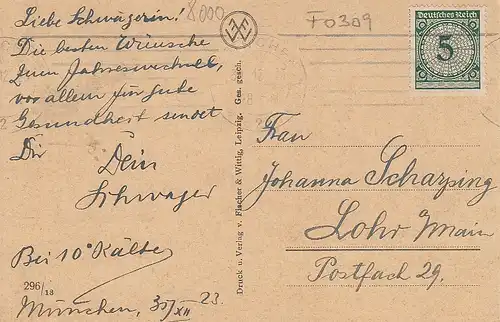 Liebe Schwägerin!
Die besten Wünsche
zum Jahreswechsel,
vor allem für gute
Gesundheit sendet
Dir Dein
Schwager
Bei 10° Kälte
296/13
München, 31/XII 23.
8000
F0309
Deutsches Reich
5
Druck u. Verlag v. Fischer & Wittig, Leipzig. Ges. gesch.
Frau
Johanna Scharping
Lohr a/Main
Postfach 29.